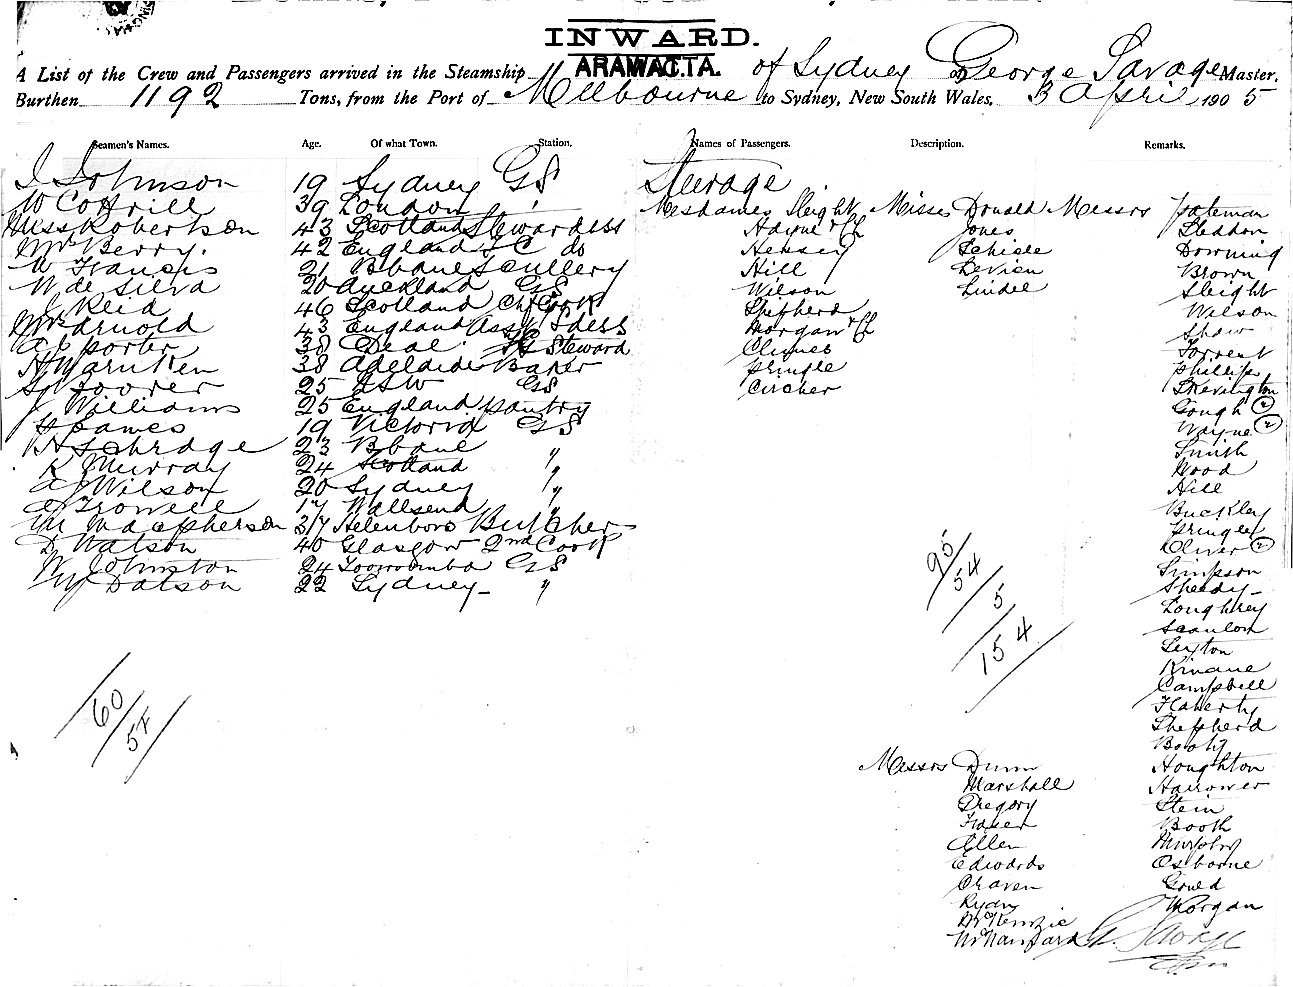 INWARD.
ARAMAC.TA.
A List of the Crew and Passengers arrived in the Steamship of Sydney George Savage Master,
Burthen 1192 Tons, from the Port of Melbourne to Sydney, New South Wales, 3 April 1905
Seamen's Names. Age. Of what Town. Station. Names of Passengers. Description. Remarks.
J Johnson 19 Sydney GS
W Cottrill 39 London "
Miss Robertson 43 Scotland Stewardess
Mrs Berry. 42 England FC do
W Francis 21 Bbane Scullery
W. de Silva 20 Auckland GS
J Reid 46 Scotland Chf Cook
Mrs Arnold 43 England Asst Sdess
A E Porter 38 Deal FG Steward
H Warnken 38 Adelaide Baker
25 NSW GS
J Williams 25 England Pantry
S Eames 19 Victoria GS
H Schrage 23 Bbane
K Murray 24 Scotland "
A J Wilson 20 Sydney "
A Trowell 17 Wallsend "
M Macpherson 37 Helensboro Butcher
D Watson 40 Glasgow 2nd Cook
W Johnston 24 Toowoomba GS
Wm Datson 22 Sydney "
60
54
Steerage
Mesdames Sleight Misses Donald Messrs Pateman
Hayne & Ch Jones Sleddon
Hersey Schiele Downing
Hill Levien Brown
Wilson Lindel Sleight
Shipherd Wilson
Morgan & Ch Shaw
Climes Torrent
Pringle Phillips
Circher Skevington
Gough 2
Wayne 2
Smith
Wood
Hill
Buckley
Pringle
Oliver 2
Simpson
Sheedy
Loughrey
Scanlon
Sexton
Kinane
Campbell
Flaherty
Shepherd
Booty
95
54
5
154
Messrs Dunn Houghton
Marshall Harrower
Gregory Stein
Fraser Booth
Ellen Murphy
Edwards Osborne
Craven Gould
Rydn Morgan
McKenzie
G. Savage